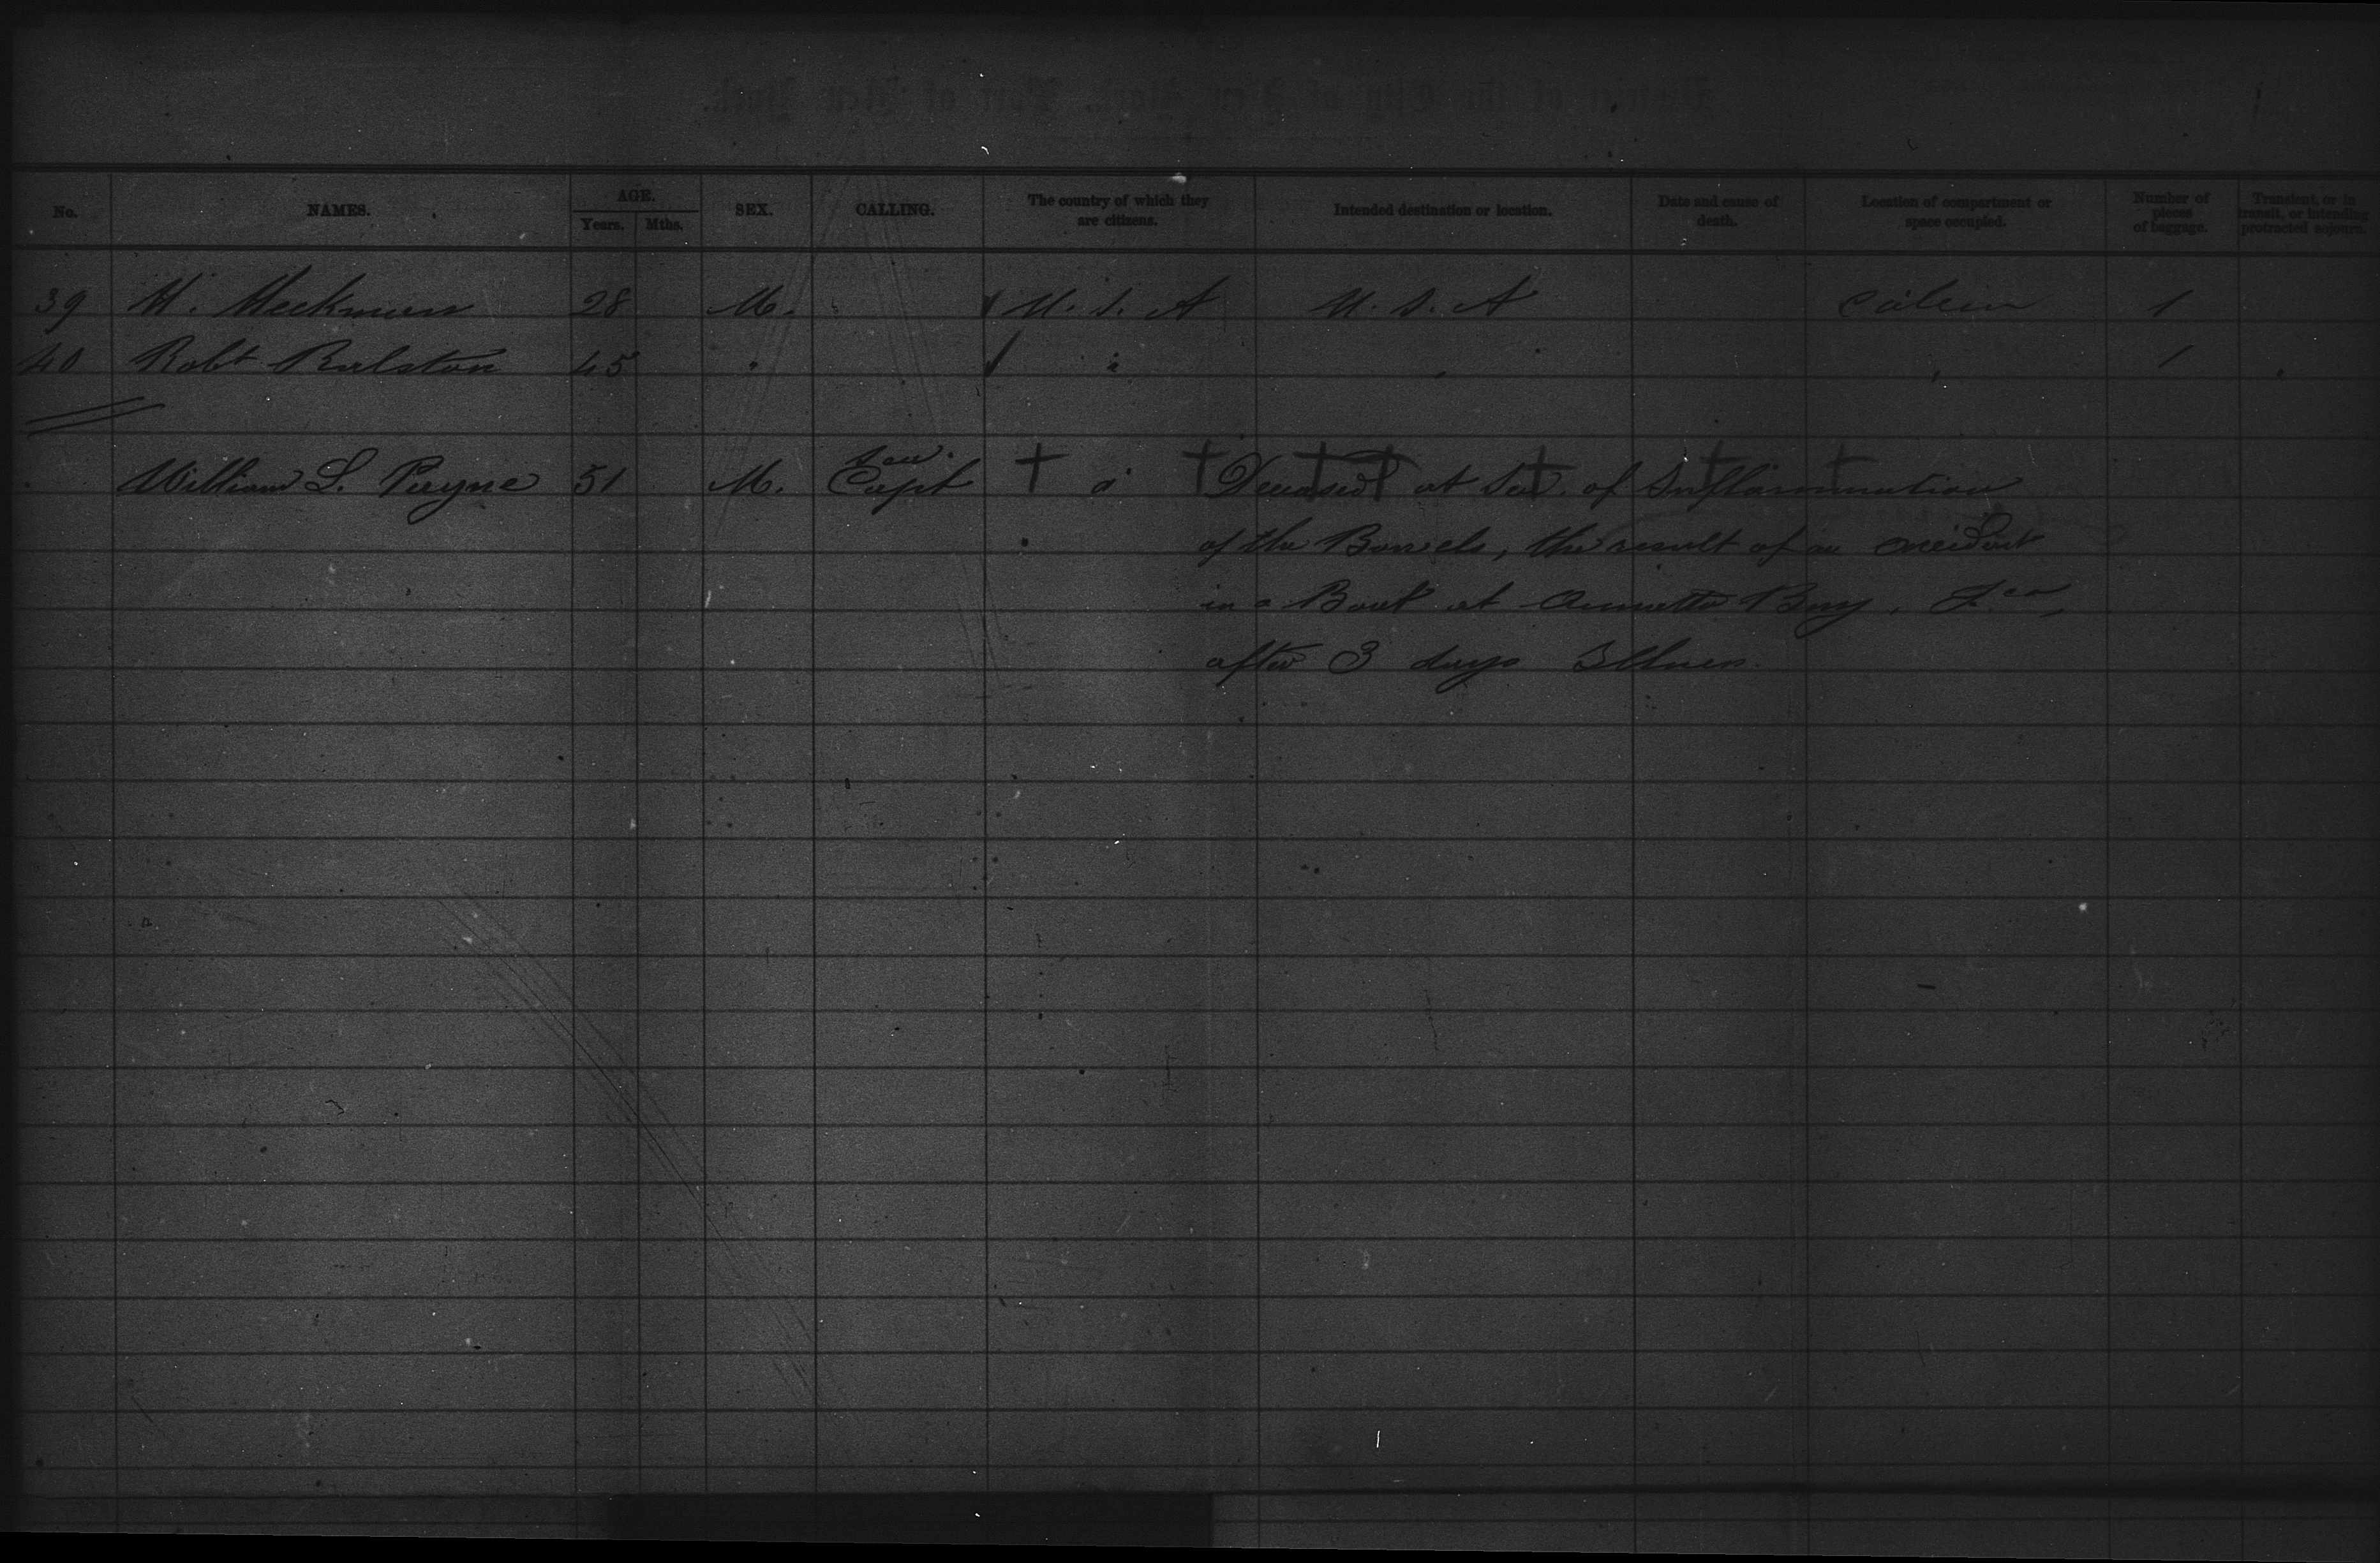 No. NAMES. AGE. Years. Mths. SEX. CALLING. The country of which they are citizens. Intended destination or location. Date and cause of death. Location of compartment or space occupied. Number of pieces of baggage. Transient, or in transit, or intending protracted sojourn.
39 H. Heckman 28 M. U. S. A U. S. A Cabin 1
40 Robt Ralston 45 " " " " 1 "
William L. Payne 51 M. Sea Capt " Deceased at Sea. of Inflammation
of the Bowels, the result of an accident
in a Boat at Annotto Bay, Jca,
after 3 days Illness.